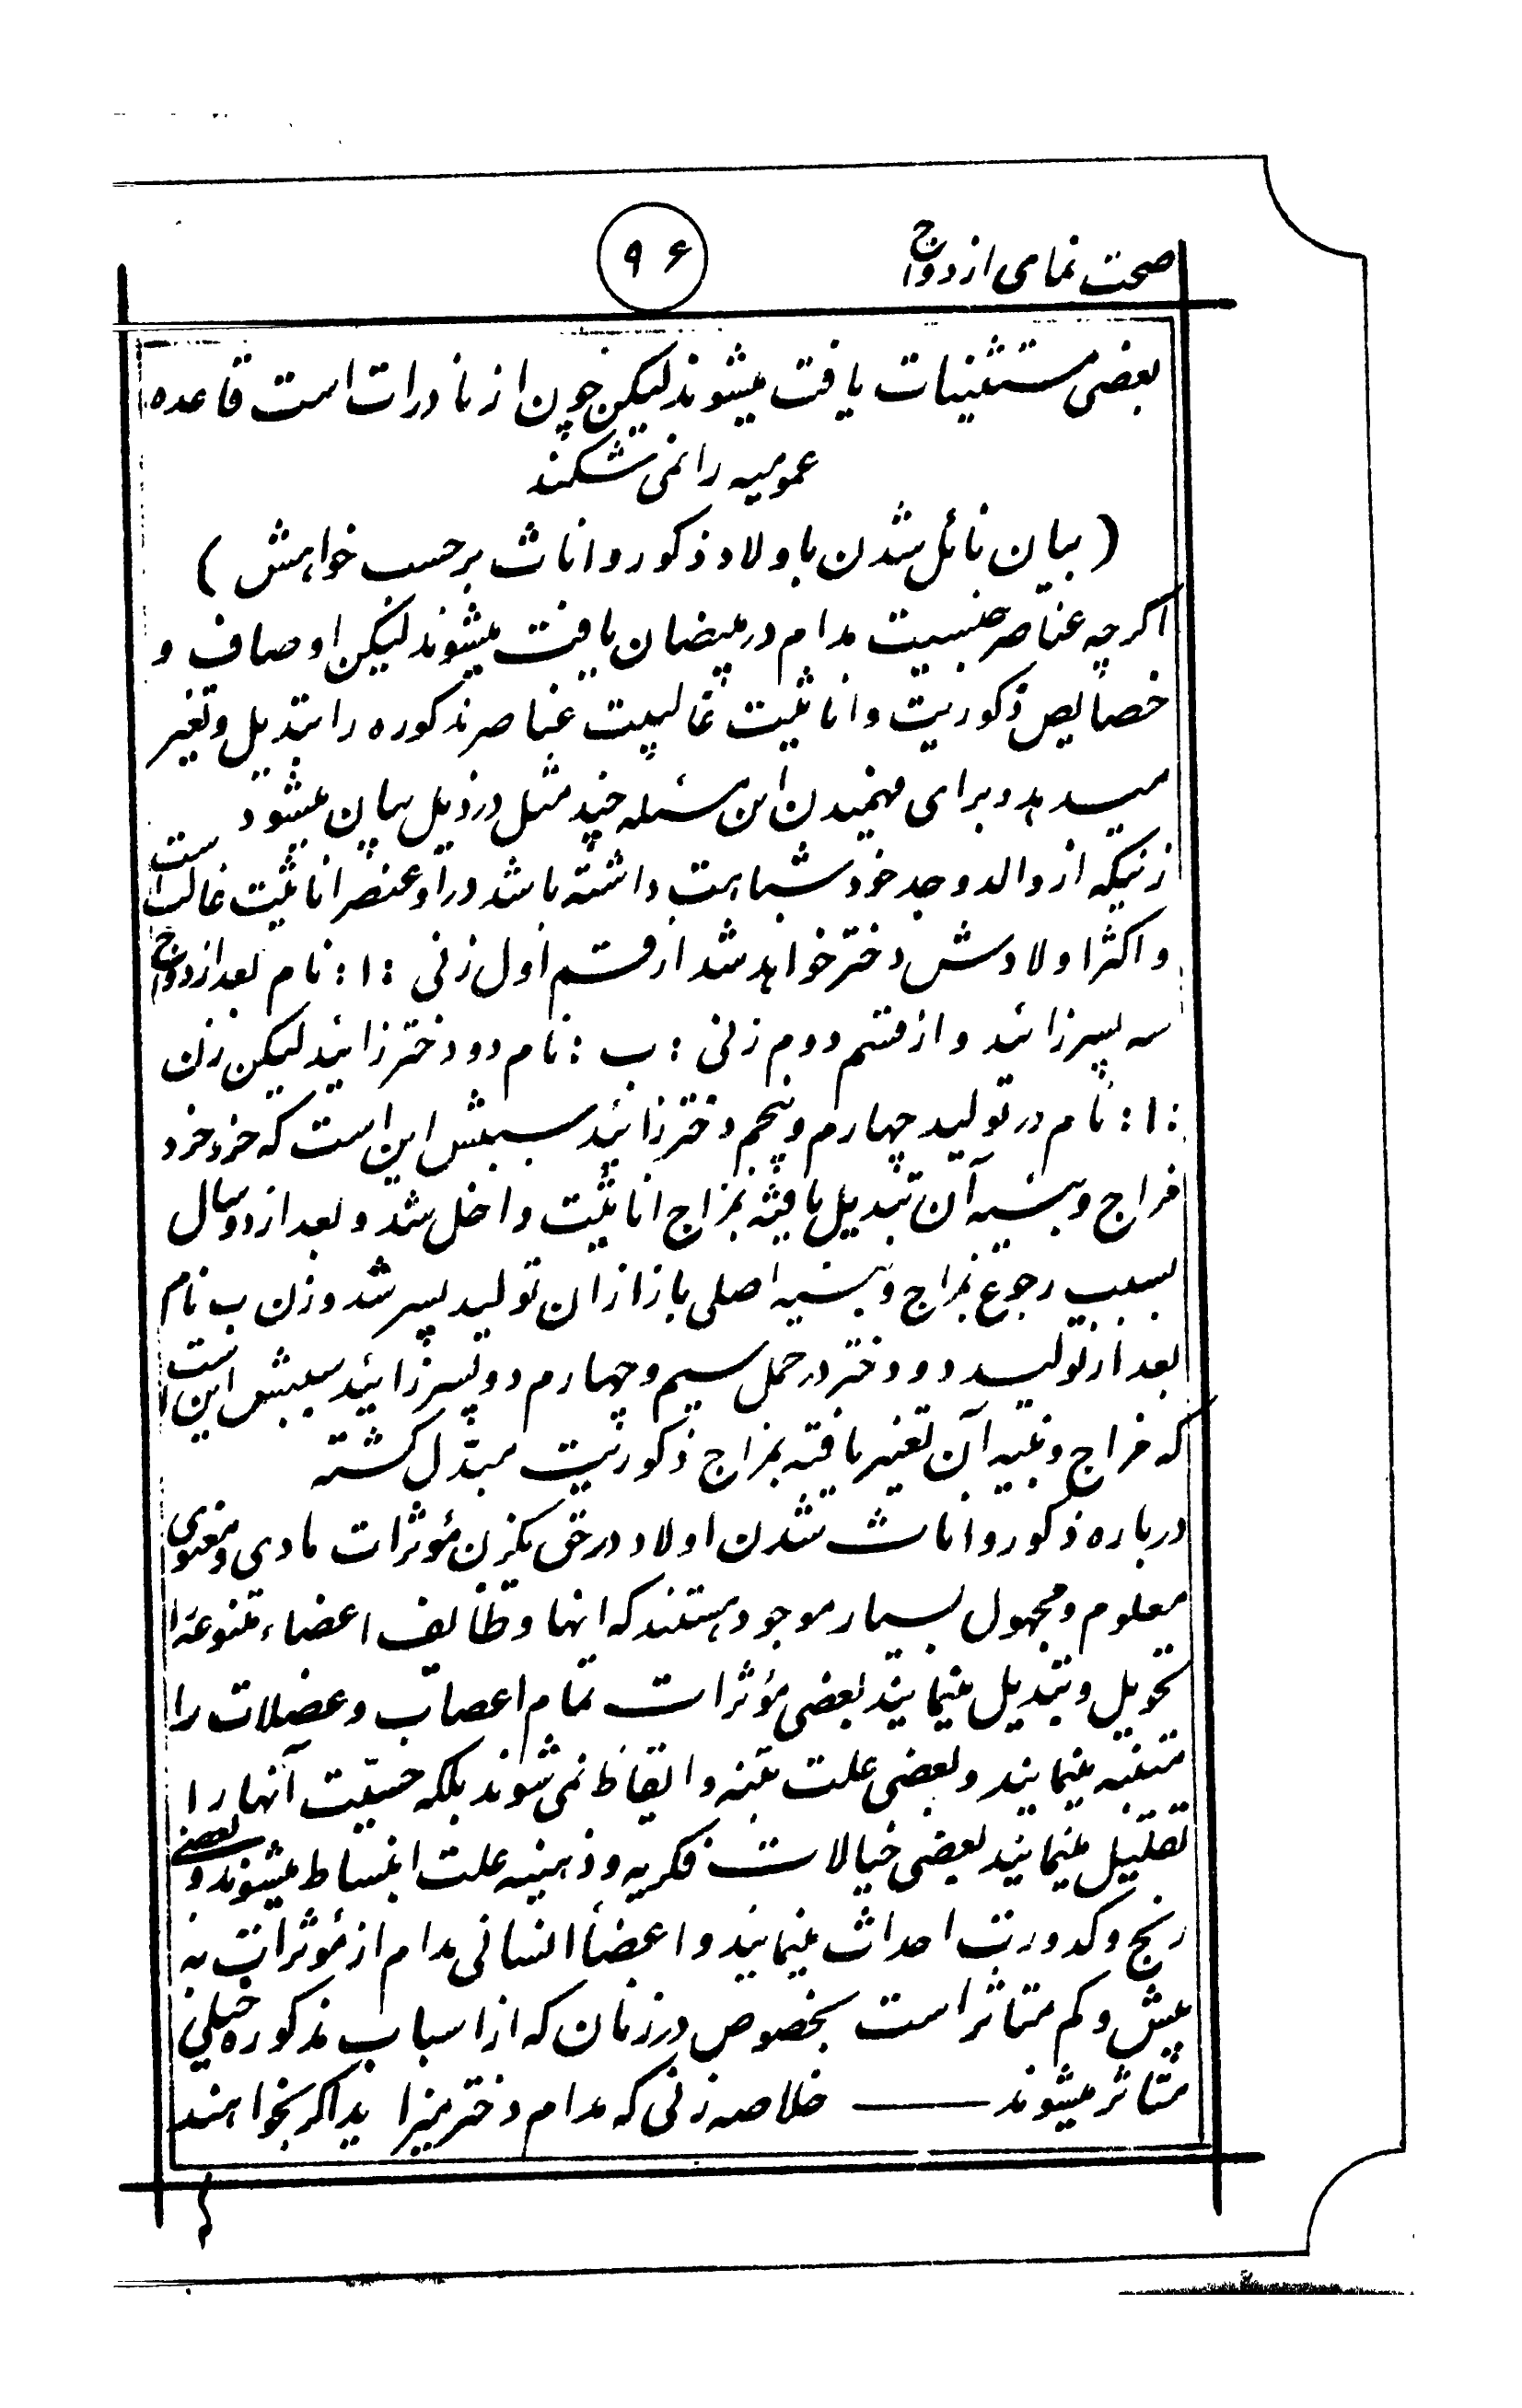 صحت نمای ازدواج
۹۶
بعضی مستثنیات یافت میشوند لیکن چون از نادرات است قاعده
عمومیه را نمی شکند
( بیان نائل شدن باولاد ذکور و اناث برحسب خواهش )
اگرچه عناصر جنسیت مدام در بیضان یافت میشوند لیکن اوصاف و
خصایص ذکوریت و اناثیت غالبیت عناصر مذکوره را تبدیل و تغیر
میدهد و برای فهمیدن این مسئله چند مثل در ذیل بیان میشود
زنیکه از والد و جد خود شباهت داشته باشد در او عنصر اناثیت غالب است
و اکثر اولادش دختر خواهد شد از قسم اول زنی :۱: نام بعد ازدواج
سه پسر زائید و از قسم دوم زنی : ب : نام دو دختر زائید لیکن زن
:۱: نام در تولید چهارم و پنجم دختر زائید سببش این است که خرد خرد
مزاج و بنیه آن تبدیل یافته بمزاج اناثیت داخل شد و بعد از دو سال
بسبب رجوع بمزاج و بنیه اصلی باز ازان تولید پسر شد و زن ب نام
بعد از تولید دو دختر در حمل سیم و چهارم دو پسر زائید سببش این است
که مزاج و بنیه آن تغیر یافته بمزاج ذکوریت مبدّل گشته
درباره ذکور و اناث شدن اولاد در حق یکزن مؤثرات مادی و معنوی
معلوم و مجهول بسیار موجود هستند که انها وظایف اعضاء متنوعه را
تحویل و تبدیل مینمایند بعضی مؤثرات تمام اعصاب و عضلات را
متنبه مینمایند و بعضی علت تنبه و ایقاظ نمی شوند بلکه حسیّت آنها را
تقلیل مینمایند بعضی خیالات فکریه و ذهنیه علت انبساط میشوند و بعضی
رنج و کدورت احداث مینمایند و اعضأ انسانی مدام از مؤثرات به
بیش و کم متاثر است بخصوص در زنان که از اسباب مذکوره خیلی
متاثر میشوند —— خلاصه زنی که مدام دختر میزاید اگر بخواهند